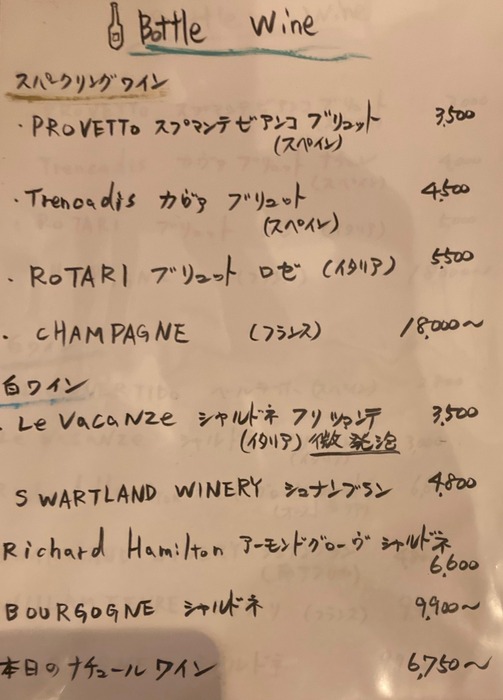 Bottle Wine
スパークリングワイン
・PROVETTO スプマンテ ビアンコ ブリュット 3,500
(スペイン)
・Trencadis カヴァ ブリュット 4,500
(スペイン)
・ROTARI ブリュット ロゼ (イタリア) 5,500
・CHAMPAGNE (フランス) 18,000〜
白ワイン
・Le Vacanze シャルドネ フリツァンテ 3,500
(イタリア) 微発泡
SWARTLAND WINERY シュナンブラン 4,800
Richard Hamilton アーモンドグローヴ シャルドネ
6,600
BOURGOGNE シャルドネ 9,900〜
本日のナチュールワイン 6,750〜